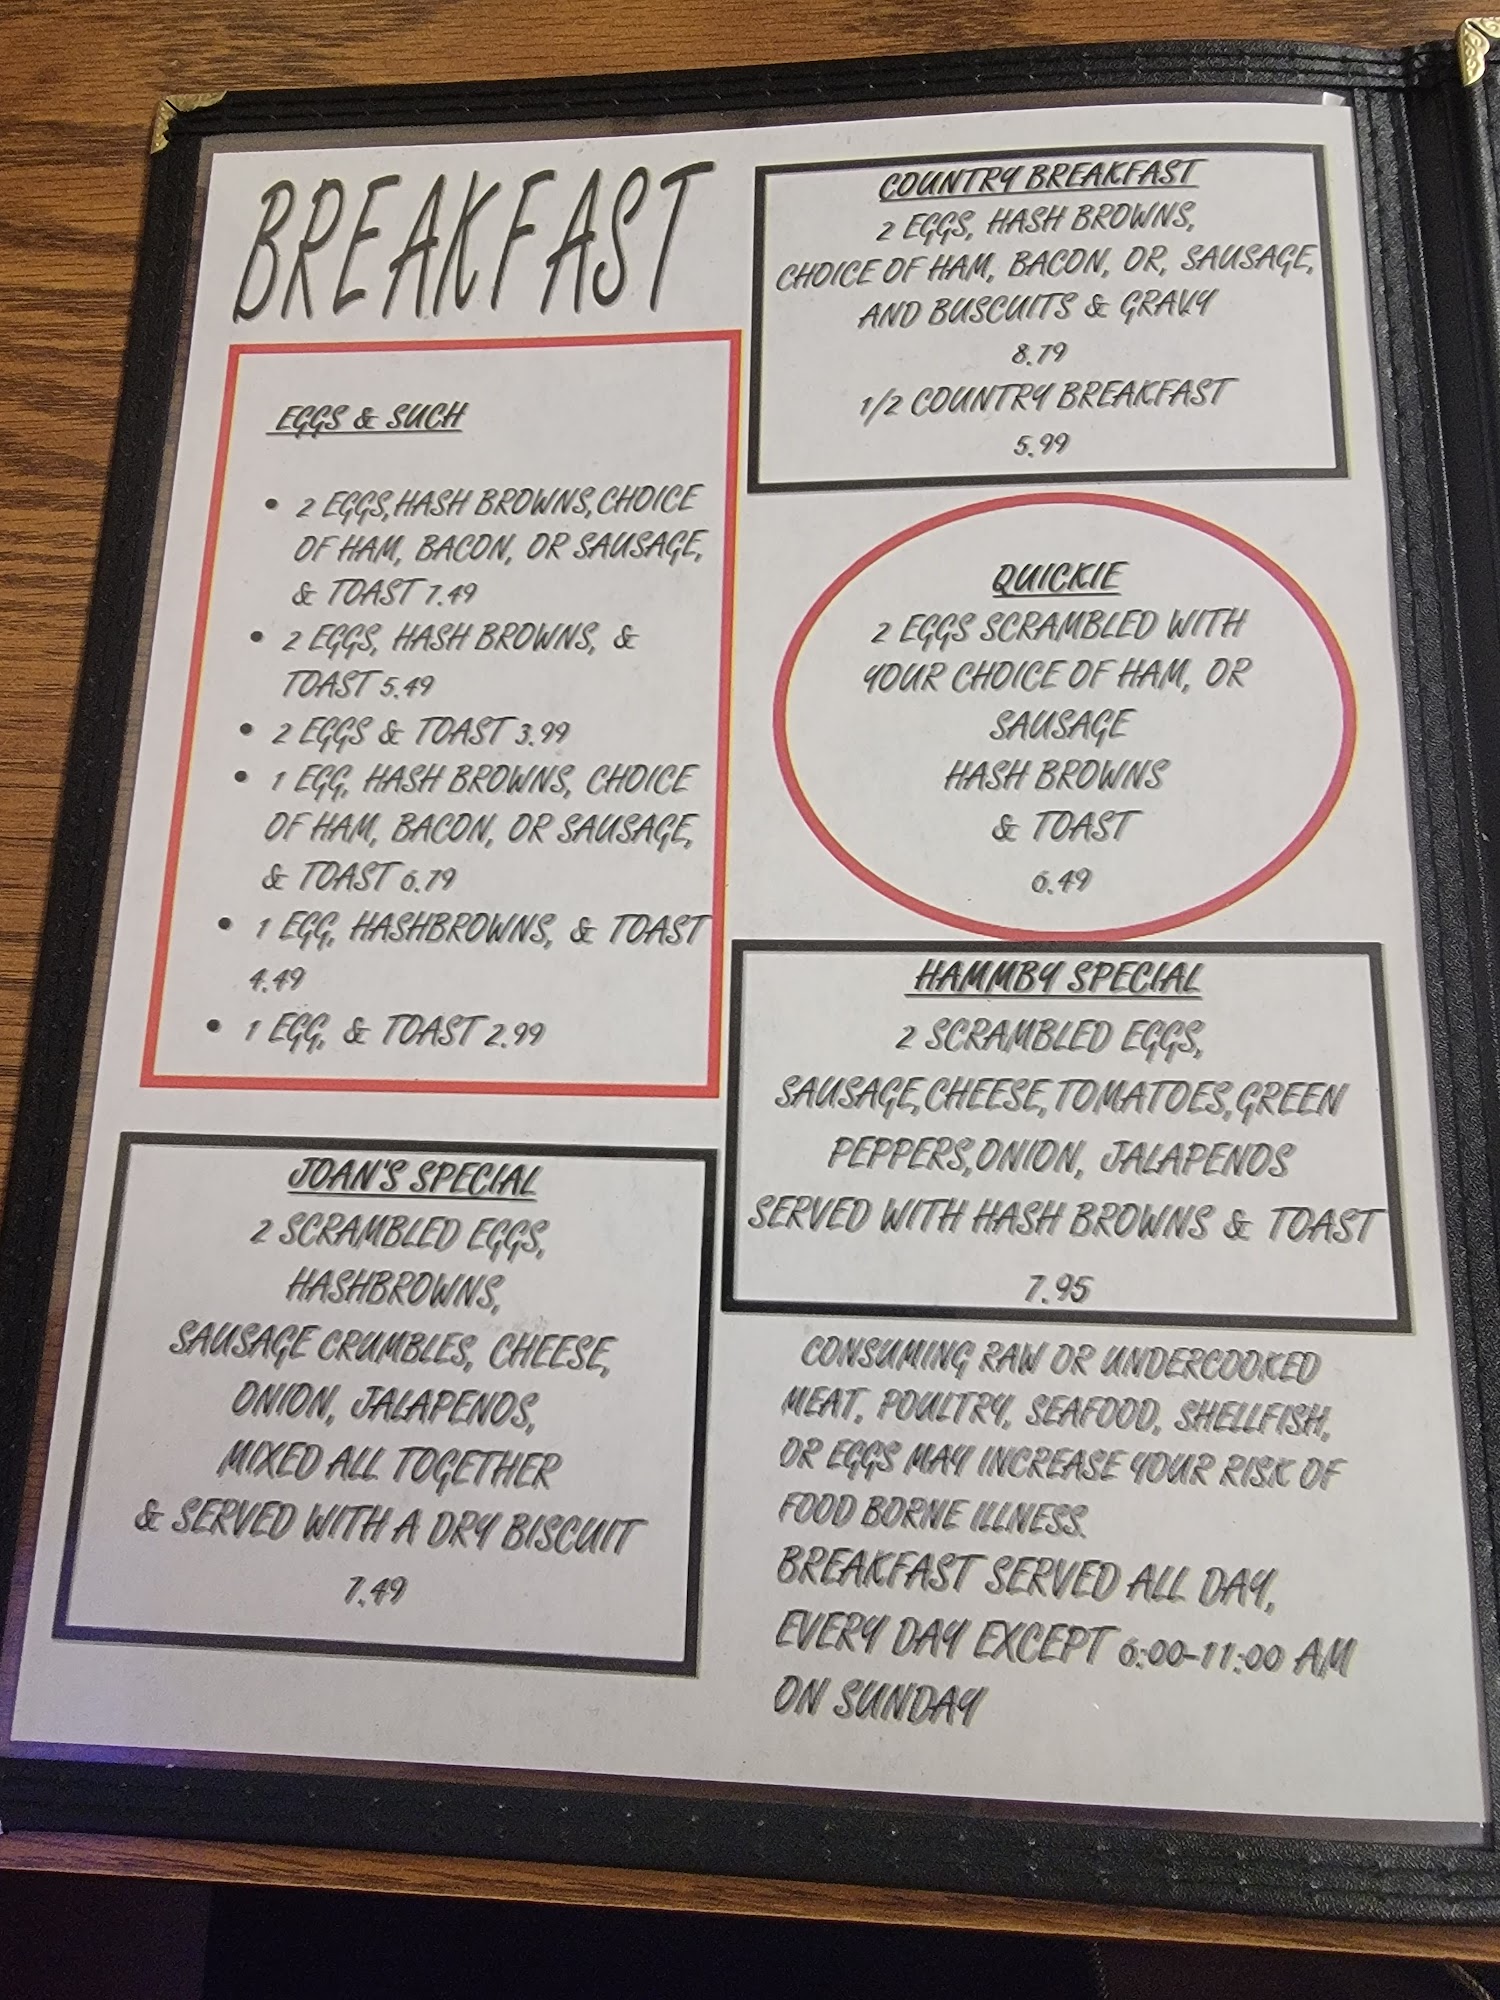 BREAKFAST
EGGS & SUCH
• 2 EGGS,HASH BROWNS,CHOICE
OF HAM, BACON, OR SAUSAGE,
& TOAST 7.49
• 2 EGGS, HASH BROWNS, &
TOAST 5.49
• 2 EGGS & TOAST 3.99
• 1 EGG, HASH BROWNS, CHOICE
OF HAM, BACON, OR SAUSAGE,
& TOAST 6.79
• 1 EGG, HASHBROWNS, & TOAST
4.49
• 1 EGG, & TOAST 2.99
JOAN'S SPECIAL
2 SCRAMBLED EGGS,
HASHBROWNS,
SAUSAGE CRUMBLES, CHEESE,
ONION, JALAPENOS,
MIXED ALL TOGETHER
& SERVED WITH A DRY BISCUIT
7.49
COUNTRY BREAKFAST
2 EGGS, HASH BROWNS,
CHOICE OF HAM, BACON, OR, SAUSAGE,
AND BUSCUITS & GRAVY
8.79
1/2 COUNTRY BREAKFAST
5.99
QUICKIE
2 EGGS SCRAMBLED WITH
YOUR CHOICE OF HAM, OR
SAUSAGE
HASH BROWNS
& TOAST
6.49
HAMMBY SPECIAL
2 SCRAMBLED EGGS,
SAUSAGE,CHEESE,TOMATOES,GREEN
PEPPERS,ONION, JALAPENOS
SERVED WITH HASH BROWNS & TOAST
7.95
CONSUMING RAW OR UNDERCOOKED
MEAT, POULTRY, SEAFOOD, SHELLFISH,
OR EGGS MAY INCREASE YOUR RISK OF
FOOD BORNE ILLNESS.
BREAKFAST SERVED ALL DAY,
EVERY DAY EXCEPT 6:00-11:00 AM
ON SUNDAY